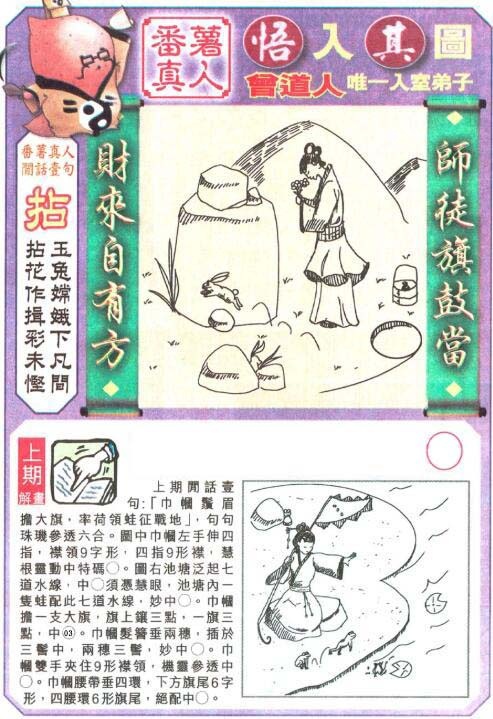 番薯真人
悟入其圖
曾道人唯一入室弟子
番薯真人
閒話壹句
拈
玉兔嫦娥下凡間
拈花作揖彩未慳
財來自有方
師徒旗鼓當
上期
解畫
上期閒話壹
句:「巾幗鬚眉
擔大旗,率荷領蛙征戰地」,句句
珠璣參透六合。圖中巾幗左手伸四
指,襟領9字形,四指9形襟,慧
根靈動中特碼○。圖右池塘泛起七
道水線,中○須憑慧眼,池塘內一
隻蛙配此七道水線,妙中○。巾幗
擔一支大旗,旗上鑲三點,一旗三
點,中03。巾幗髮簪垂兩穗,插於
三髻中,兩穗三髻,妙中○。巾
幗雙手夾住9形襟領,機靈參透中
○。巾幗腰帶垂四環,下方旗尾6字
形,四腰環6形旗尾,絕配中○。